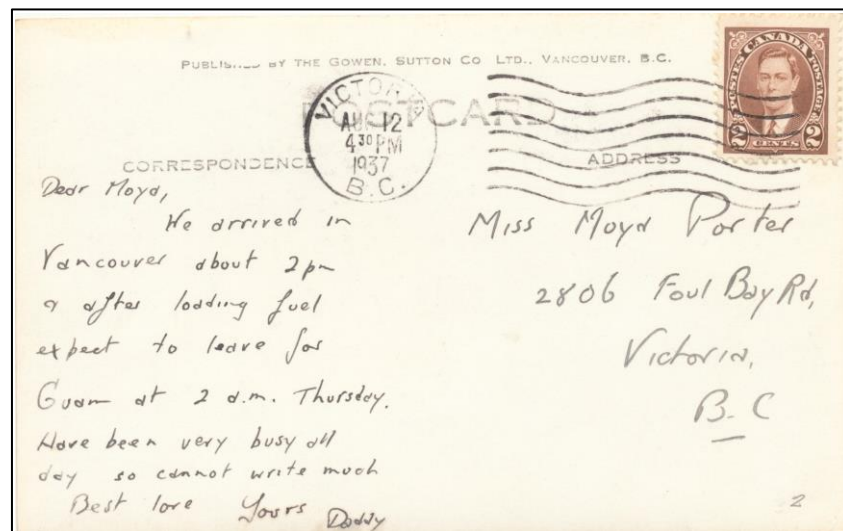 PUBLISHED BY THE GOWEN, SUTTON CO LTD., VANCOUVER, B.C.
POSTCARD
VICTORIA
AUG 12
4 30 PM
1937
B.C.
POSTES CANADA POSTAGE
2 CENTS 2
CORRESPONDENCE
Dear Moya,
We arrived in
Vancouver about 2pm
& after loading fuel
expect to leave for
Guam at 2 a.m. Thursday.
Have been very busy all
day so cannot write much
Best love Yours Daddy
ADDRESS
Miss Moya Porter
2806 Foul Bay Rd,
Victoria,
B.C
2